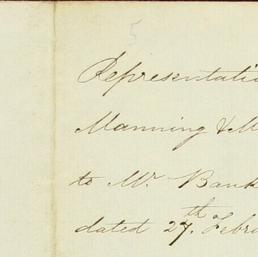 5
Representatio
Manning & M
to Mr. Bank
dated 27th. Febru